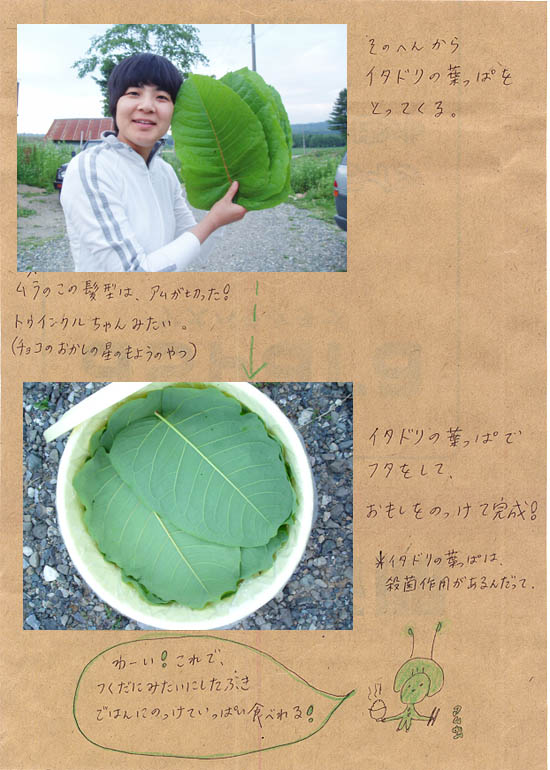 そのへんから
イタドリの葉っぱを
とってくる。
ムラのこの髪型は、アムが切った!
トゥインクルちゃんみたい。
(チョコのおかしの星のもようのやつ)
イタドリの葉っぱで
フタをして、
おもしをのっけて完成!
*イタドリの葉っぱは、
殺菌作用があるんだって。
わーい!これで、
つくだにみたいにしたふき
ごはんにのっけていっぱい食べれる!